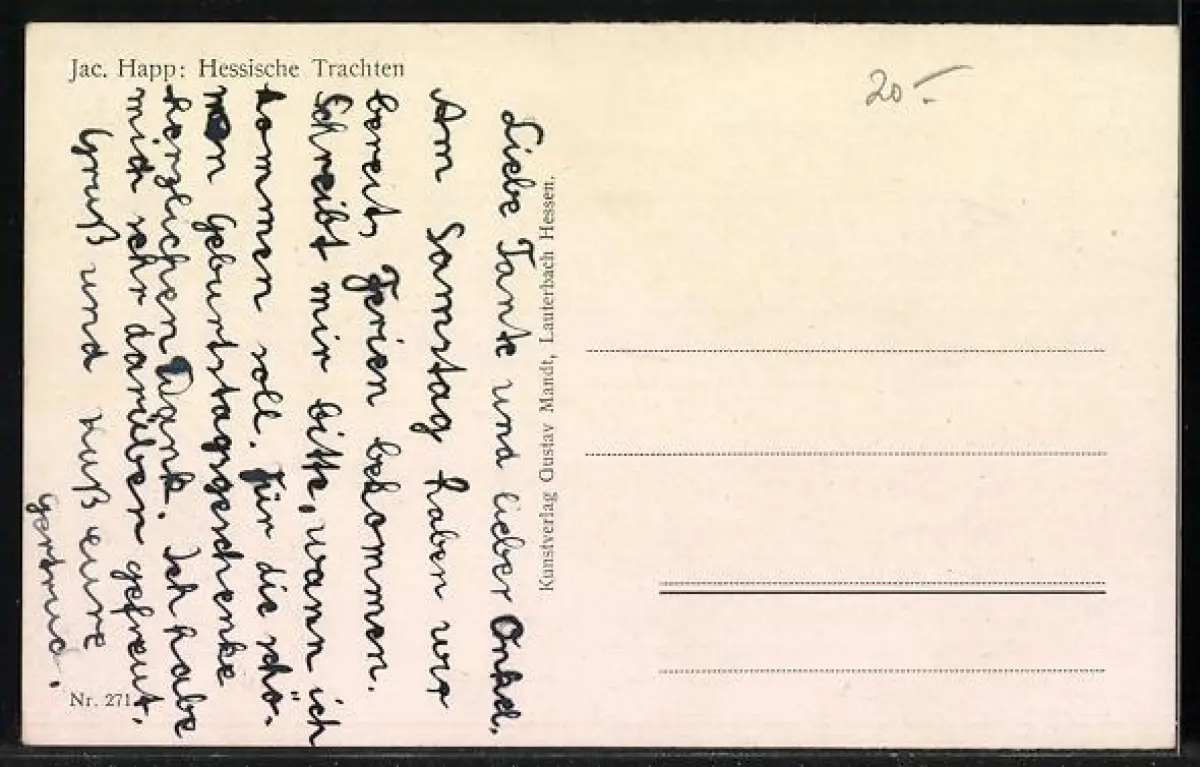 Jac. Happ: Hessische Trachten
Liebe Tante und lieber Onkel.
Am Samstag haben wir
bereits Ferien bekommen.
Schreibt mir bitte, wann ich
kommen soll. Für die schö-
nen Geburtstagsgeschenke
herzlichen Dank. Ich habe
mich sehr darüber gefreut.
Gruß und Kuß eure
Gertrud.
Nr. 271
Kunstverlag Gustav Mandt, Lauterbach Hessen.
20.-